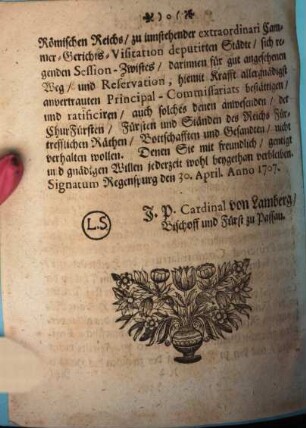 )o(
Römischen Reichs / zu umstehender extraordinari Cam-
mer-Gerichts-Visitation deputirten Städte / sich re-
genden Session-Zwistes / darinnen für gut angesehenen
Weg / und Reservation, hiemit Krafft allergnädigst
anvertrauten Principal-Commissariats bestättigen /
und ratificiren / auch solches denen anwesenden / der
ChurFürsten / Fürsten und Ständen des Reichs Für-
trefflichen Räthen / Bottschafften und Gesandten / nicht
verhalten wollen. Denen Sie mit freundlich / geneigt
und gnädigen Willen jederzeit wohl beygethan verbleiben.
Signatum Regenspurg den 30. April. Anno 1707.
J. P. Cardinal von Lamberg /
Bischoff und Fürst zu Passau.
L.S.